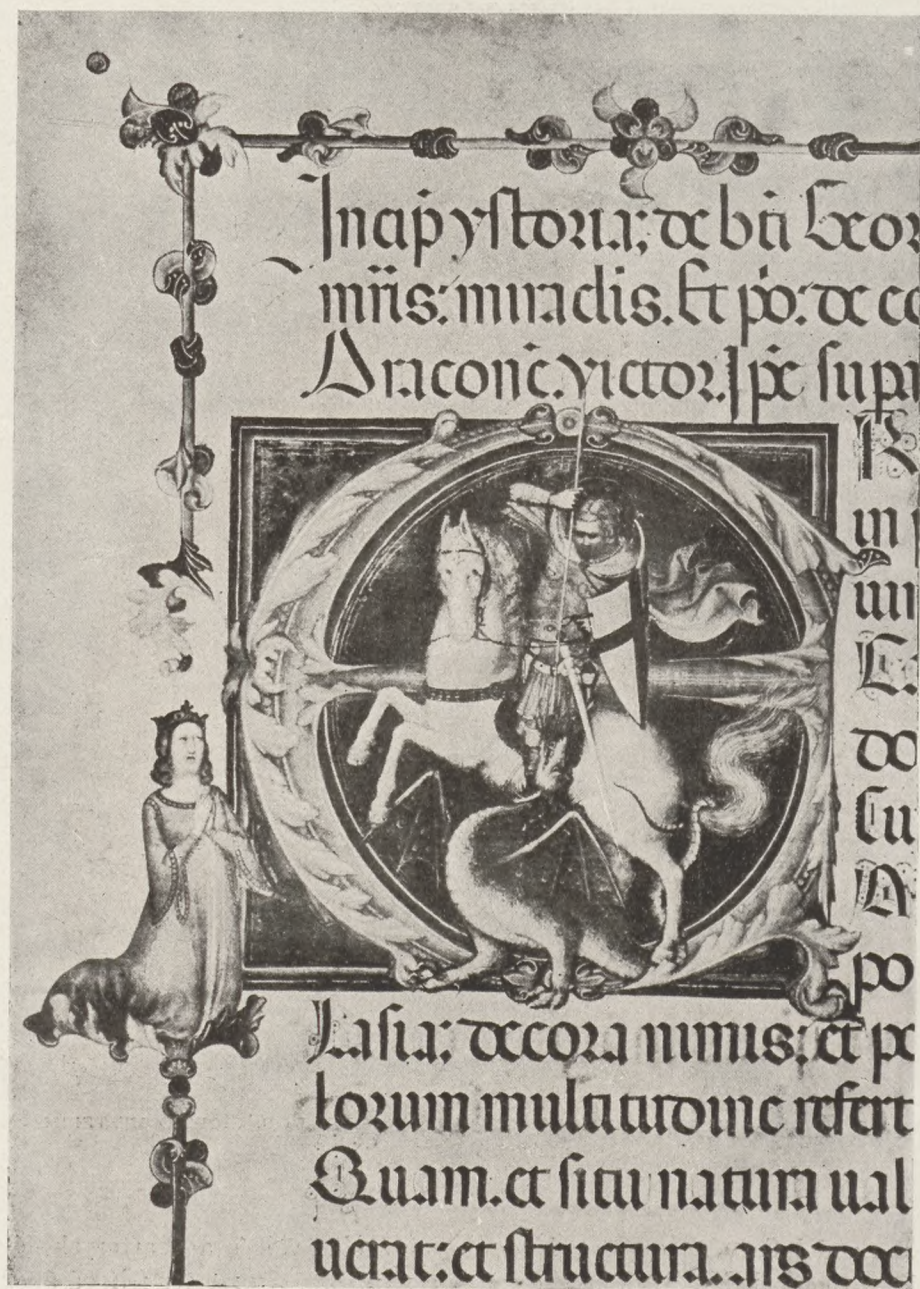 Incip ystoria; de bti Geor
mris: miraclis. Et po: de co
Dracone. victor. Ipe supi
R
in
L
do
Cu
A
po
Lasia; decora nimis; et po
lorum multitudine refert
Quam. et situ natura ual
uerat: et structura. ars doc